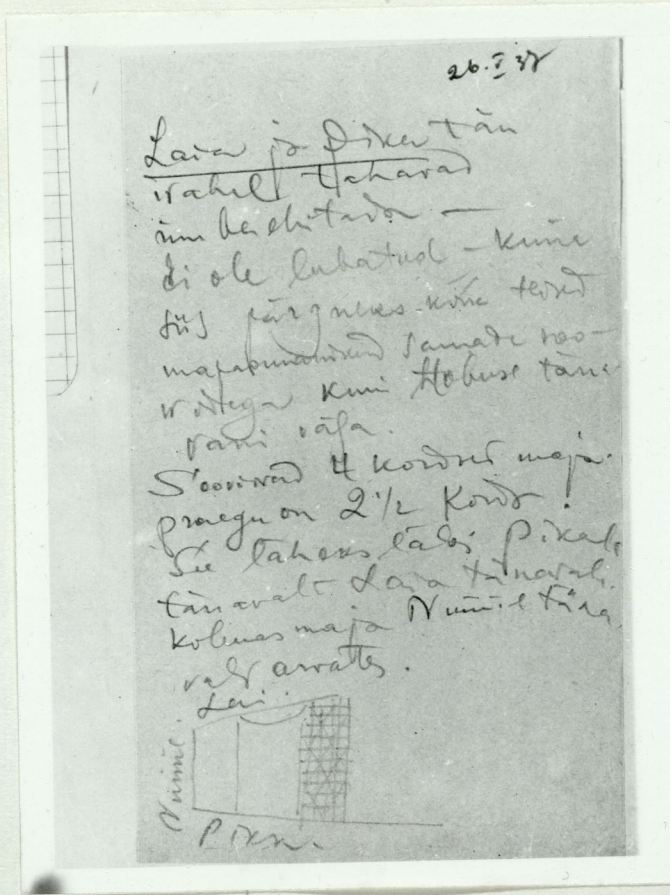 26.I 38
Laia ja Pika tän
vahel tahavad
ümberehitada —
ei ole lubatud — kuna
siis järgneks kõik teised
majaomanikud samade soo-
videga kuni Hobuse täna
vani välja.
Soovivad 4 kordset maja.
praegu on 2 1/2 korda.
See läheks läbi Pikalt
tänavalt Laia tänavale.
kolmas maja Nunne täna
valt arvates.
Lai.
Nunne.
Pikk.